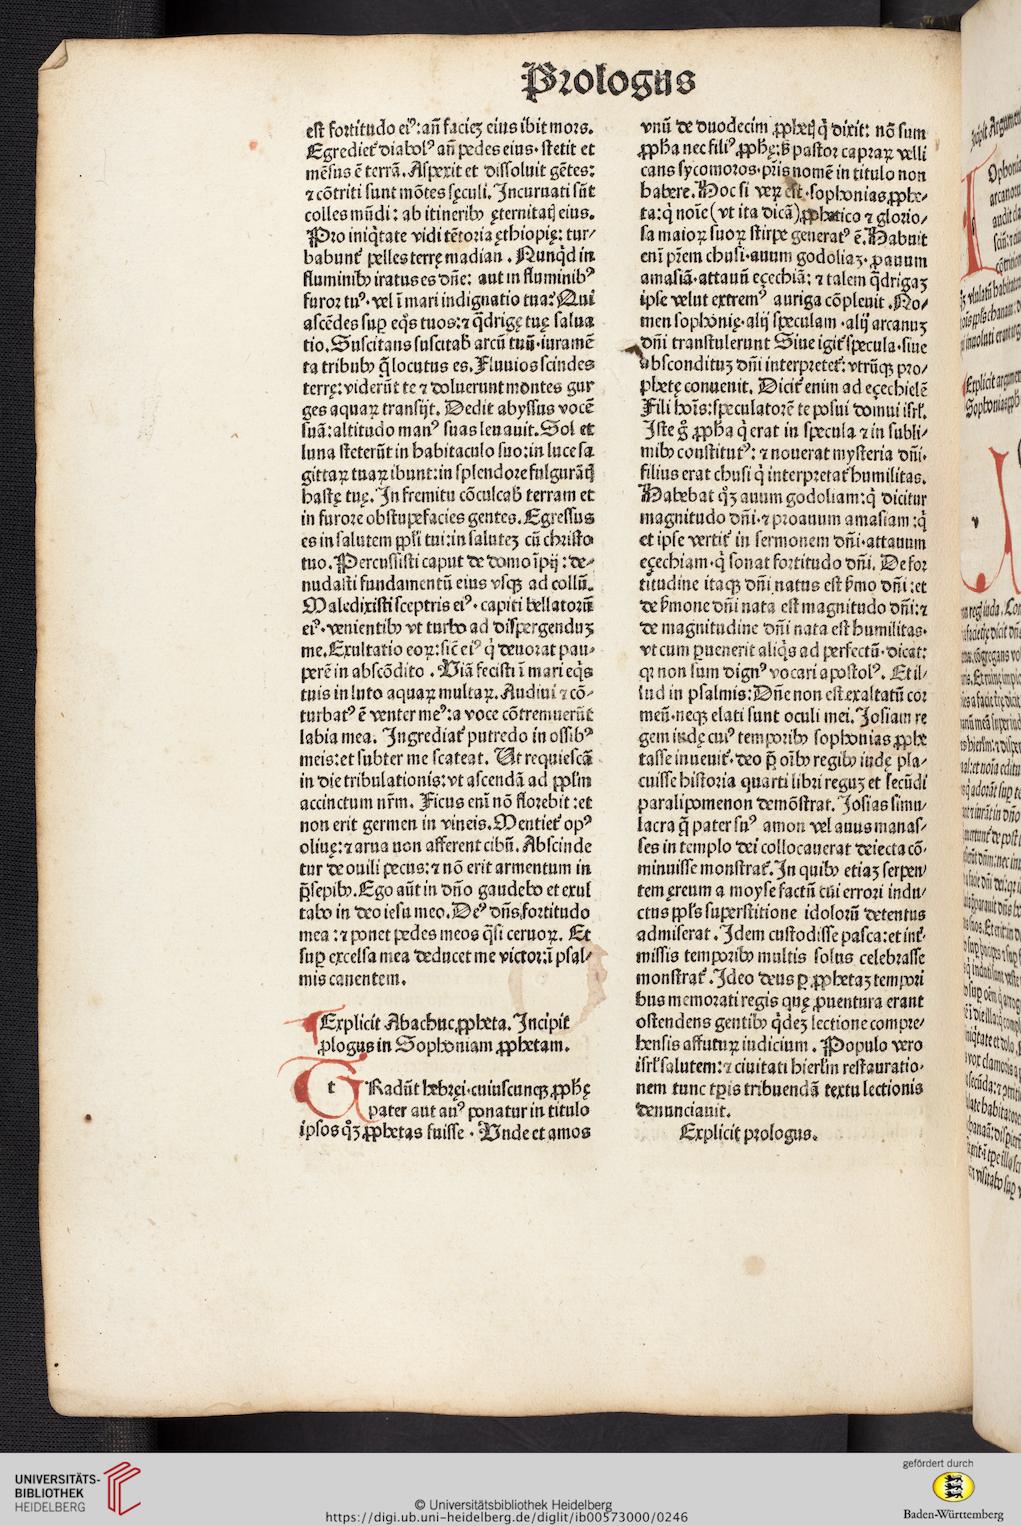 Prologus
est fortitudo eiꝰ: an̄ faciez eius ibit mors.
Egrediet᷑ diabolꝰ an̄ pedes eius. stetit et
mēsus ē terrā. Aspexit et dissoluit gētes:
⁊ cōtriti sunt mōtes sęculi. Incuruati sūt
colles mūdi: ab itineribꝫ ęternitatꝭ eius.
Pro iniq̇tate vidi tētoria ęthiopię: tur⸗
babunt᷑ pelles terrę madian. Nunq̇d in
fluminibꝫ iratus es dn̄e: aut in fluminibꝰ
furor tuꝰ. vel ī mari indignatio tua? Qui
ascēdes suꝑ eq̇s tuos: ⁊ q̇drigę tuę salua
tio. Suscitans suscitab̄ arcū tuū. iuramē
ta tribubꝫ q̄ locutus es. Fluuios scindes
terrę: viderūt te ⁊ doluerunt montes gur
ges aquaꝝ transijt. Dedit abyssus vocē
suā: altitudo manꝰ suas leuauit. Sol et
luna steterūt in habitaculo suo: in luce sa
gittaꝝ tuaꝝ ibunt: in splendore fulgurātꝭ
hastę tuę. In fremitu cōculcab̄ terram et
in furore obstupefacies gentes. Egressus
es in salutem ppl̄i tui: in salutez cū christo
tuo. Percussisti caput de domo īpij: de⸗
nudasti fundamentū eius vsqꝫ ad collū.
Maledixisti sceptris eiꝰ. capiti bellatorū
eiꝰ. venientibꝫ vt turbo ad dispergenduz
me. Exultatio eoꝝ: sic̄ eiꝰ q̇ deuorat pau⸗
perē in abscōdito. Viā fecisti ī mari eq̇s
tuis in luto aquaꝝ multaꝝ. Audiui ⁊ cō⸗
turbatꝰ ē venter meꝰ: a voce cōtremuerūt
labia mea. Ingrediat᷑ putredo in ossibꝰ
meis: et subter me scateat. Ut requiescā
in die tribulationis: vt ascendā ad ppl̄m
accinctum nr̄m. Ficus enī nō florebit: et
non erit germen in vineis. Mentiet᷑ opꝰ
oliuę: ⁊ arua non afferent cibū. Abscinde
tur de ouili pecus: ⁊ nō erit armentum in
p̄sepibꝫ. Ego aūt in dn̄o gaudebo et exul
tabo in deo iesu meo. Deꝰ dn̄s fortitudo
mea: ⁊ ponet pedes meos q̇si ceruoꝝ. Et
suꝑ excelsa mea deducet me victor: ī psal⸗
mis canentem.
Explicit Abachuc ꝓpheta. Incipit
ꝓlogus in Sophoniam ꝓphetam.
t
Radūt hebręi. cuiuscunqꝫ ꝓphę
pater aut auꝰ ponatur in titulo
ipsos qꝫ ꝓphetas fuisse. Unde et amos
vnū de duodecim ꝓphetꝭ q̇ dixit: nō sum
ꝓpha nec filiꝰ ꝓphę: s̄ pastor capraꝝ velli
cans sycomoros. pr̄is nomē in titulo non
habere. Hoc si veꝝ est. sophonias ꝓphe⸗
ta: q̇ noīe (vt ita dicā) ꝓphetico ⁊ glorio⸗
sa maioꝝ suoꝝ stirpe generatꝰ ē. Habuit
enī pr̄em chusi. auum godoliaz. ꝓauum
amasiā. attauū eçechiā: ⁊ talem q̇drigaz
ipse velut extremꝰ auriga cōpleuit. No⸗
men sophonię. alij speculam. alij arcanuz
dn̄i transtulerunt Siue igit᷑ specula. siue
abscondituz dn̄i interpretet᷑: vtrūqꝫ pro⸗
phetę conuenit. Dicit᷑ enim ad eçechielē
Fili hoīs: speculatorē te posui domui isrł.
Iste g̊ ꝓpha q̇ erat in specula ⁊ in subli⸗
mibꝫ constitutꝰ: ⁊ nouerat mysteria dn̄i.
filius erat chusi q̇ interpretat᷑ humilitas.
Habebat qꝫ auum godoliam: q̇ dicitur
magnitudo dn̄i. ⁊ proauum amasiam: q̇
et ipse vertit᷑ in sermonem dn̄i. attauum
eçechiam. q̇ sonat fortitudo dn̄i. De for
titudine itaqꝫ dn̄i natus est s̄mo dn̄i: et
de s̄mone dn̄i nata est magnitudo dn̄i: ⁊
de magnitudine dn̄i nata est humilitas.
vt cum ꝑuenerit aliq̇s ad perfectū. dicat:
qꝛ non sum dignꝰ vocari apostolꝰ. Et il⸗
lud in psalmis: Dn̄e non est exaltatū cor
meū. neqꝫ elati sunt oculi mei. Iosiam re
gem iudę cuiꝰ temporibꝫ sophonias ꝓphe
tasse inuenit᷑. deo p̄ oībꝫ regibꝫ iudę pla⸗
cuisse historia quarti libri reguz et secūdi
paralipomenon demōstrat. Iosias simu⸗
lacra q̄ pater suꝰ amon vel auus manas⸗
ses in templo dei collocauerat deiecta cō⸗
minuisse monstrat᷑. In quibꝫ etiaz serpen⸗
tem ęreum a moyse factū cui errori indu⸗
ctus ppl̄s superstitione idolorū detentus
admiserat. Idem custodisse pasca: et int᷑⸗
missis temporibꝫ multis solus celebrasse
monstrat᷑. Ideo deus ꝑ ꝓphetaz tempori
bus memorati regis quę ꝓuentura erant
ostendens gentibꝫ q̇dez lectione compre⸗
hensis affutuꝝ iudicium. Populo vero
isrł salutem: ⁊ ciuitati hierłm restauratio⸗
nem tunc tꝑis tribuendā textu lectionis
denunciauit.
Explicit prologus.
UNIVERSITÄTS-
BIBLIOTHEK
HEIDELBERG
© Universitätsbibliothek Heidelberg
https://digi.ub.uni-heidelberg.de/diglit/ib00573000/0246
gefördert durch
Baden-Württemberg